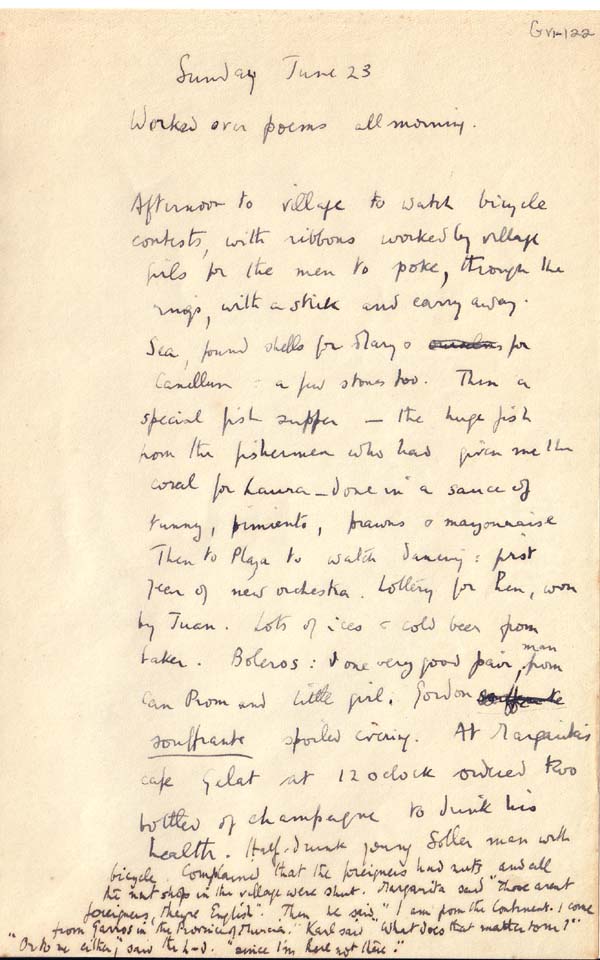 GVI-122
Sunday June 23
Worked over poems all morning.
Afternoon to village to watch bicycle
contests, with ribbons worked by village
girls for the men to poke, through the
rings, with a stick and carry away.
Sea, found shells for Mary & for
Canellun & a few stones too. Then a
special fish supper — the huge fish
from the fishermen who had given me the
coral for Laura — done in a sauce of
tunny, pimiento, prawns & mayonnaise
Then to Plaza to watch dancing: first
year of new orchestra. Lottery for hen, won
by Juan. Lots of ices & cold beer from
baker. Boleros: one very good pair, man from
Can Prom and little girl. Gordon
souffrante spoiled evening. At Margarita's
cafe Gelat at 12 oclock ordered two
bottles of champagne to drink his
health. Half-drunk young Soller man with
bicycle. Complained that the foreigners had nuts, and all
the nut shops in the village were shut. Margarita said "Those arent
foreigners, theyre English". Then he said, "I am from the Continent. I come
from in the Province of Murcia." Karl said "What does that matter to me?"
"Or to me either," said the "since I'm here not there."